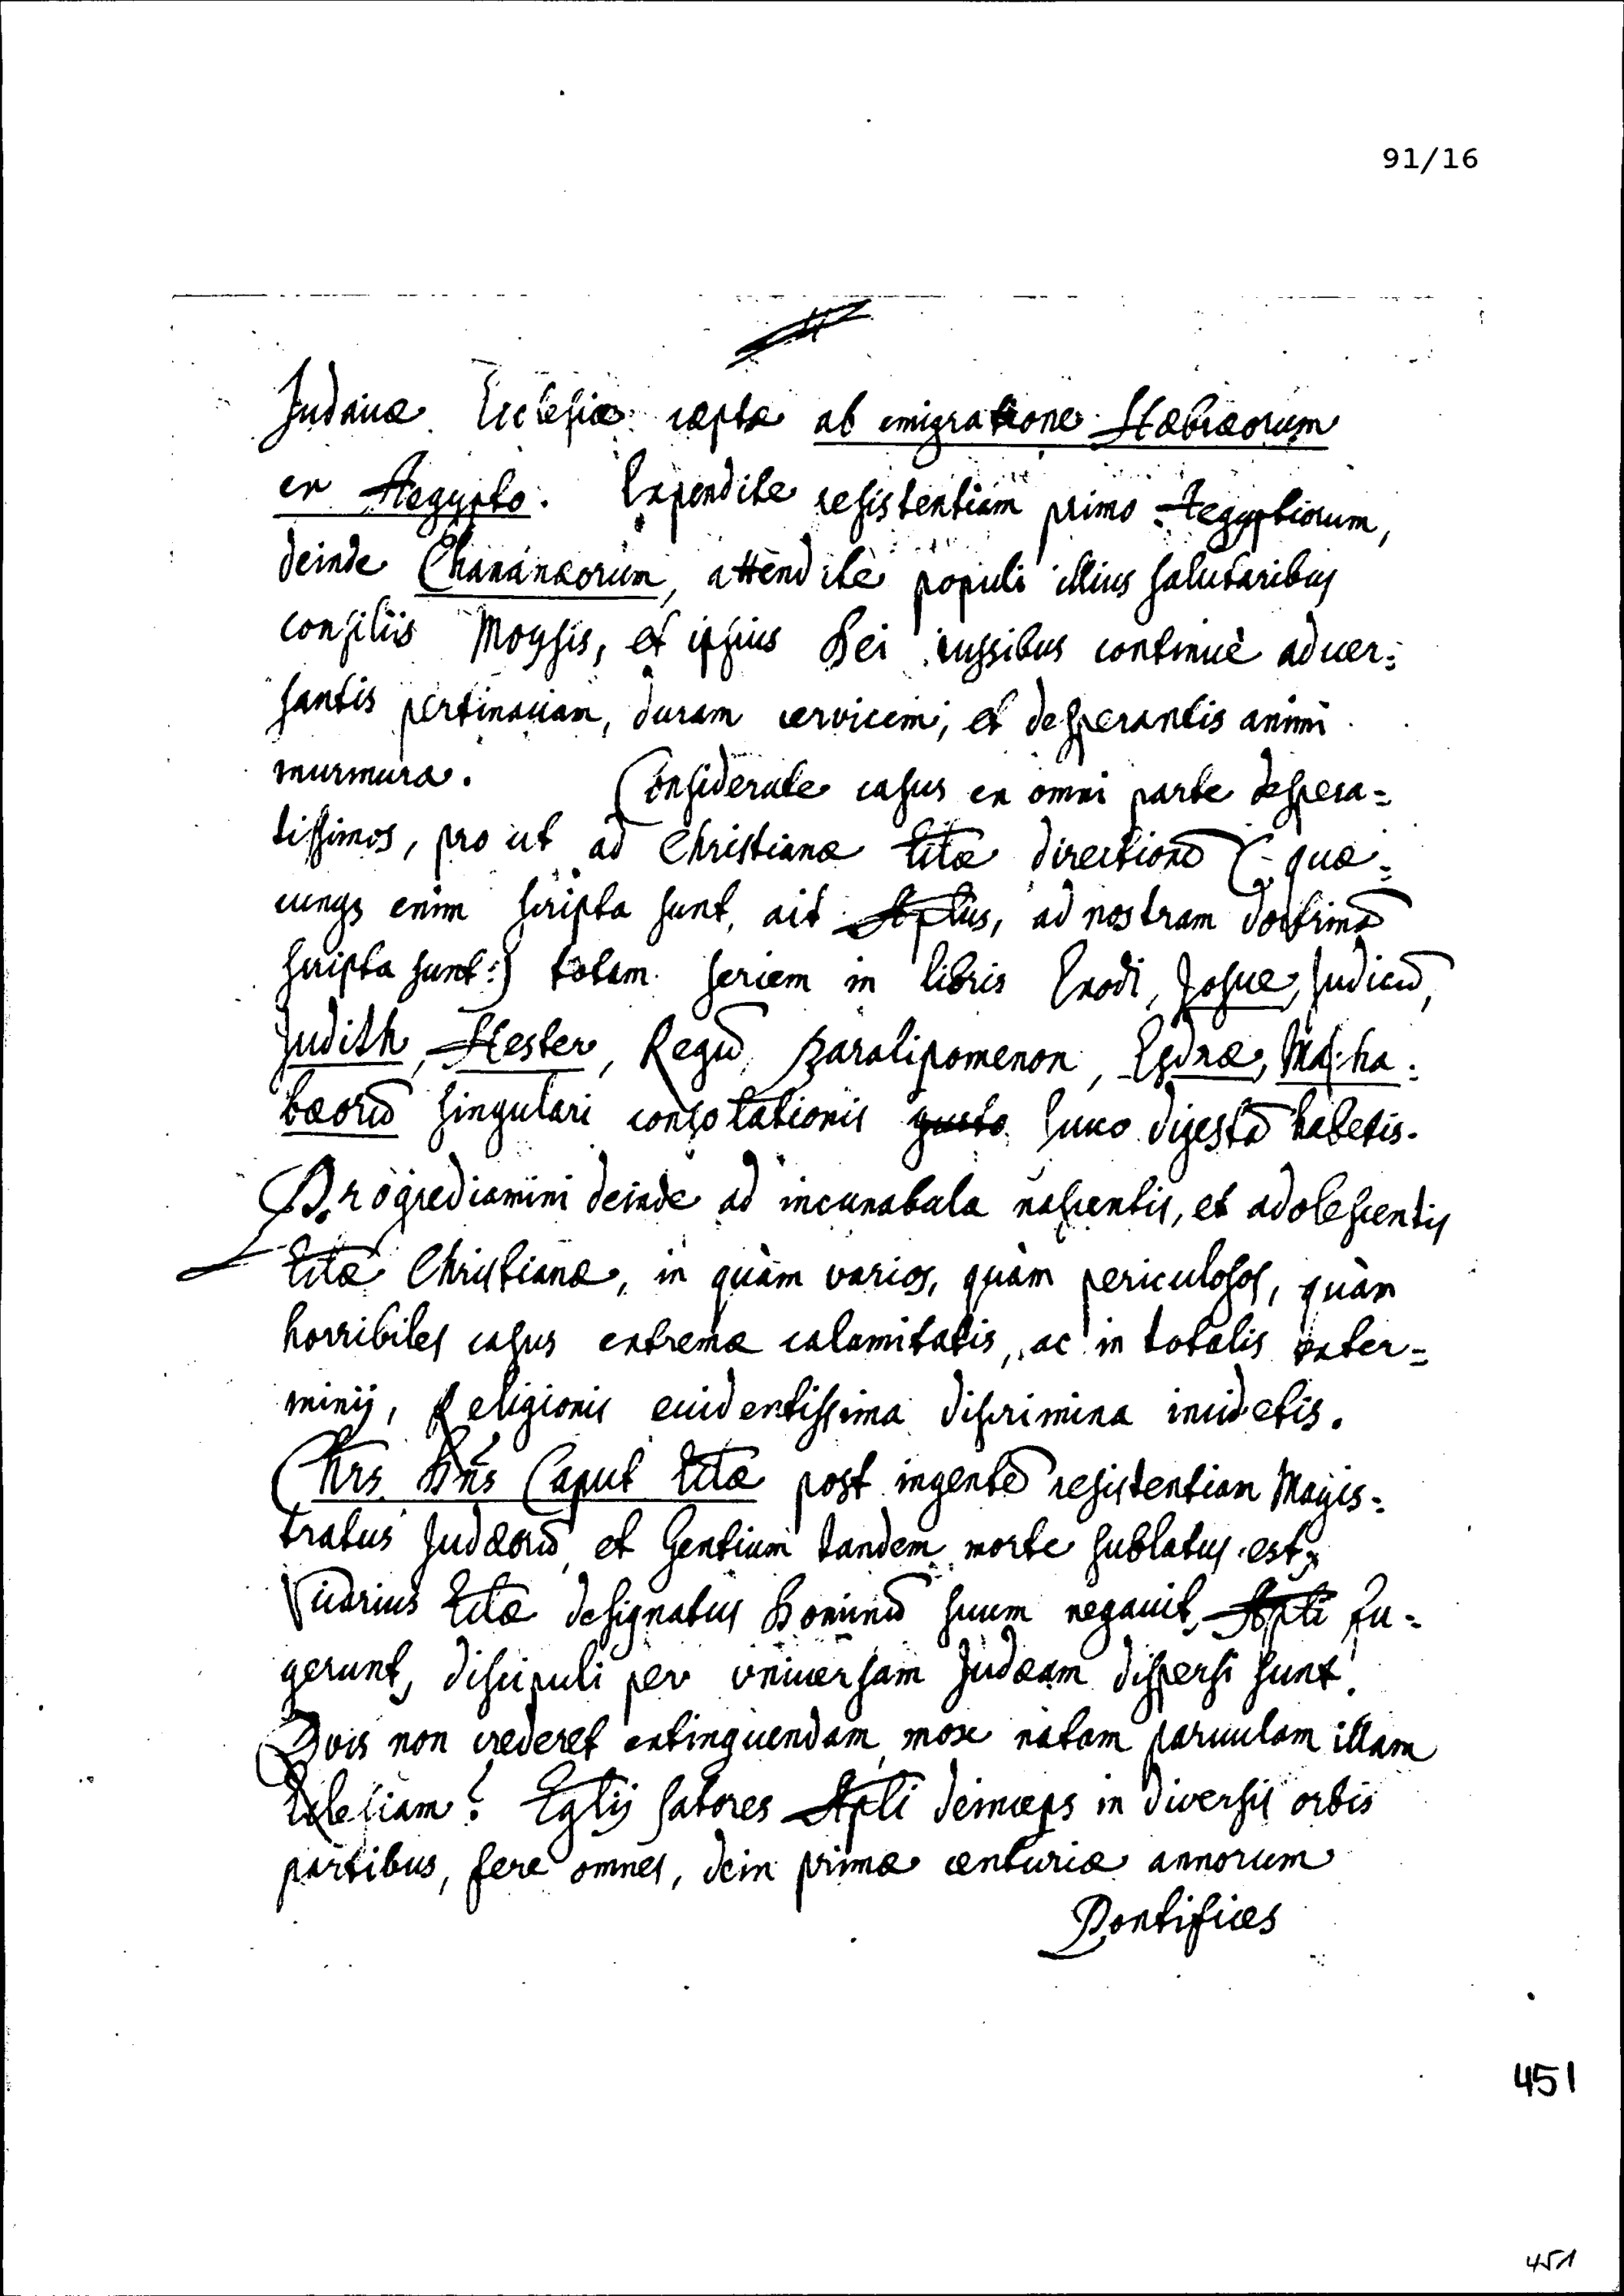 91/16
Judaicæ Ecclesiæ cæptæ ab emigratione Hæbræorum
ex Aegypto. Expendite resistentiam primo Aegyptiorum,
deinde Chananæorum, attendite populi illius salutaribus
consiliis Moysis, et ipsius Dei iussibus continuè aduer=
santis pertinaciam, duram cervicem, et desperantis animi
murmura. Considerate casus ex omni parte despera=
tissimos, pro ut ad Christianæ Ecclæ directionē (: quæ=
cunqꝫ enim scripta sunt, ait Aplus, ad nostram doctrinā
scripta sunt :) totam seriem in libris Exodi, Josue, Judicū,
Judith, Hester, Regū, Paralipomenon, Esdræ, Macha=
bæorū singulari consolationis gusto succo digestā habetis.
Progrediamini deinde ad incunabula nascentis, et adolescentis
Ecclæ Christianæ, in quàm varios, quàm periculosos, quàm
horribiles casus extremæ calamitatis, ac in totalis exter=
minij, Religionis euidentissima discrimina incidetis.
Chrs Dns Caput Ecclæ post ingentē resistentiam Magis=
tratus Judæorū et Gentium tandem morte sublatus est,
Vicarius Ecclæ designatus Dominū suum negauit, Apli fu=
gerunt, discipuli per vniuersam Judæam dispersi sunt.
Quis non crederet extinguendam mox natam paruulam illam
Ecclesiam? satores Apli deinceps in diversis orbis
partibus, fere omnes, dein primæ centuriæ annorum
Pontifices
451
451